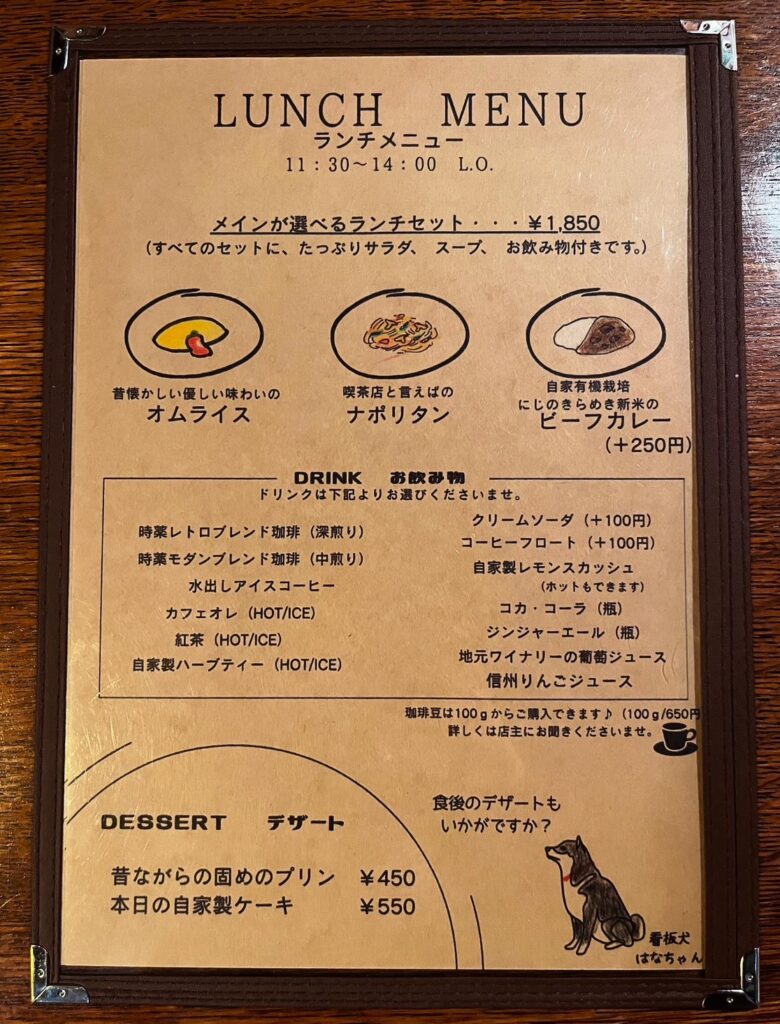 LUNCH MENU
ランチメニュー
11:30〜14:00 L.O.
メインが選べるランチセット・・・¥1,850
(すべてのセットに、たっぷりサラダ、 スープ、 お飲み物付きです。)
昔懐かしい優しい味わいの
オムライス
喫茶店と言えばの
ナポリタン
自家有機栽培
にじのきらめき新米の
ビーフカレー
(+250円)
DRINK お飲み物
ドリンクは下記よりお選びくださいませ。
時薬レトロブレンド珈琲(深煎り)
時薬モダンブレンド珈琲(中煎り)
水出しアイスコーヒー
カフェオレ(HOT/ICE)
紅茶(HOT/ICE)
自家製ハーブティー(HOT/ICE)
クリームソーダ(+100円)
コーヒーフロート(+100円)
自家製レモンスカッシュ
(ホットもできます)
コカ・コーラ(瓶)
ジンジャーエール(瓶)
地元ワイナリーの葡萄ジュース
信州りんごジュース
珈琲豆は100gからご購入できます♪(100g/650円
詳しくは店主にお聞きくださいませ。
DESSERT デザート
昔ながらの固めのプリン ¥450
本日の自家製ケーキ ¥550
食後のデザートも
いかがですか?
看板犬
はなちゃん